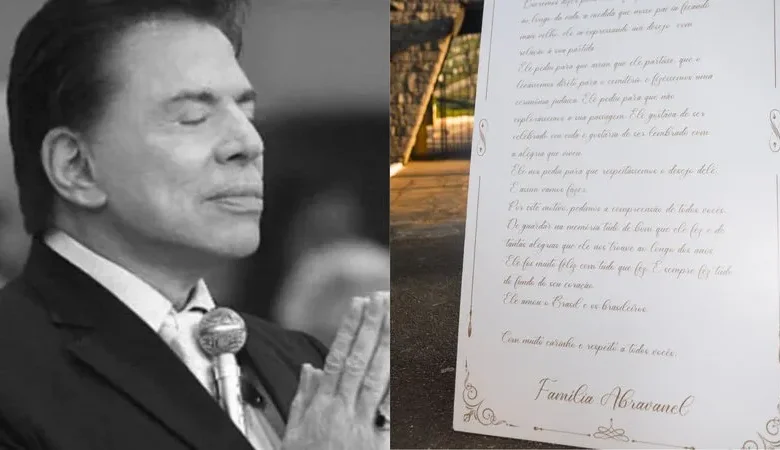 ao longo da vida, a medida que meu pai foi ficando
mais velho, ele ia expressando um desejo com
relação à sua partida.
Ele pediu para que assim que ele partisse, que o
levassemos direto para o cemitério e fizessemos uma
cerimônia judaica. Ele pediu para que não
explorássemos a sua passagem. Ele gostava de ser
celebrado em vida e gostaria de ser lembrado com
a alegria que viveu.
Ele nos pediu para que respeitássemos o desejo dele.
E assim vamos fazer.
Por este motivo, pedimos a compreensão de todos vocês.
De guardar na memória tudo de bom que ele fez e de
tantas alegrias que ele nos trouxe ao longo dos anos.
Ele foi muito feliz com tudo que fez. E sempre fez tudo
do fundo do seu coração.
Ele amou o Brasil e os brasileiros.
Com muito carinho e respeito a todos vocês.
Família Abravanel